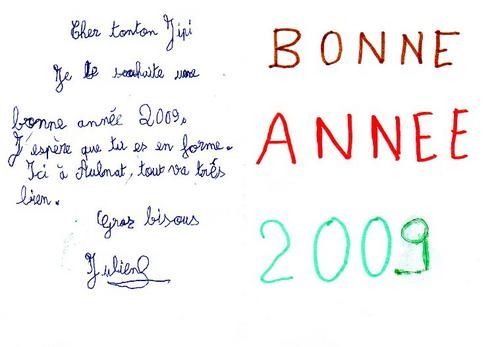 Cher tonton Jipi
Je te souhaite une
bonne année 2009.
J'espère que tu es en forme.
Ici à Aulnat, tout va très
bien.
Gros bisous
Julien
BONNE
ANNEE
2009